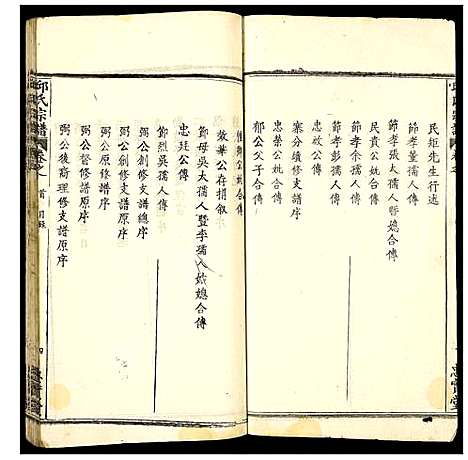 民矩先生行述
節孝董孺人傳
節孝張太孺人暨媳合傳
民貴公妣合傳
節孝余孺人傳
節孝彭孺人傳
志啟公傳
志榮公妣合傳
寨分續修支譜序
郁公父子合傳
公妣合傳
敖華公存捐叙
節母吳太孺人暨李孺人姑媳合傳
忠廷公傳
節烈吳孺人傳
弼公創修支譜總序
弼公創修支譜原序
弼公原修譜序
弼公督修譜原序
弼公後裔理修支譜原序
邱氏宗譜
卷之首
目錄